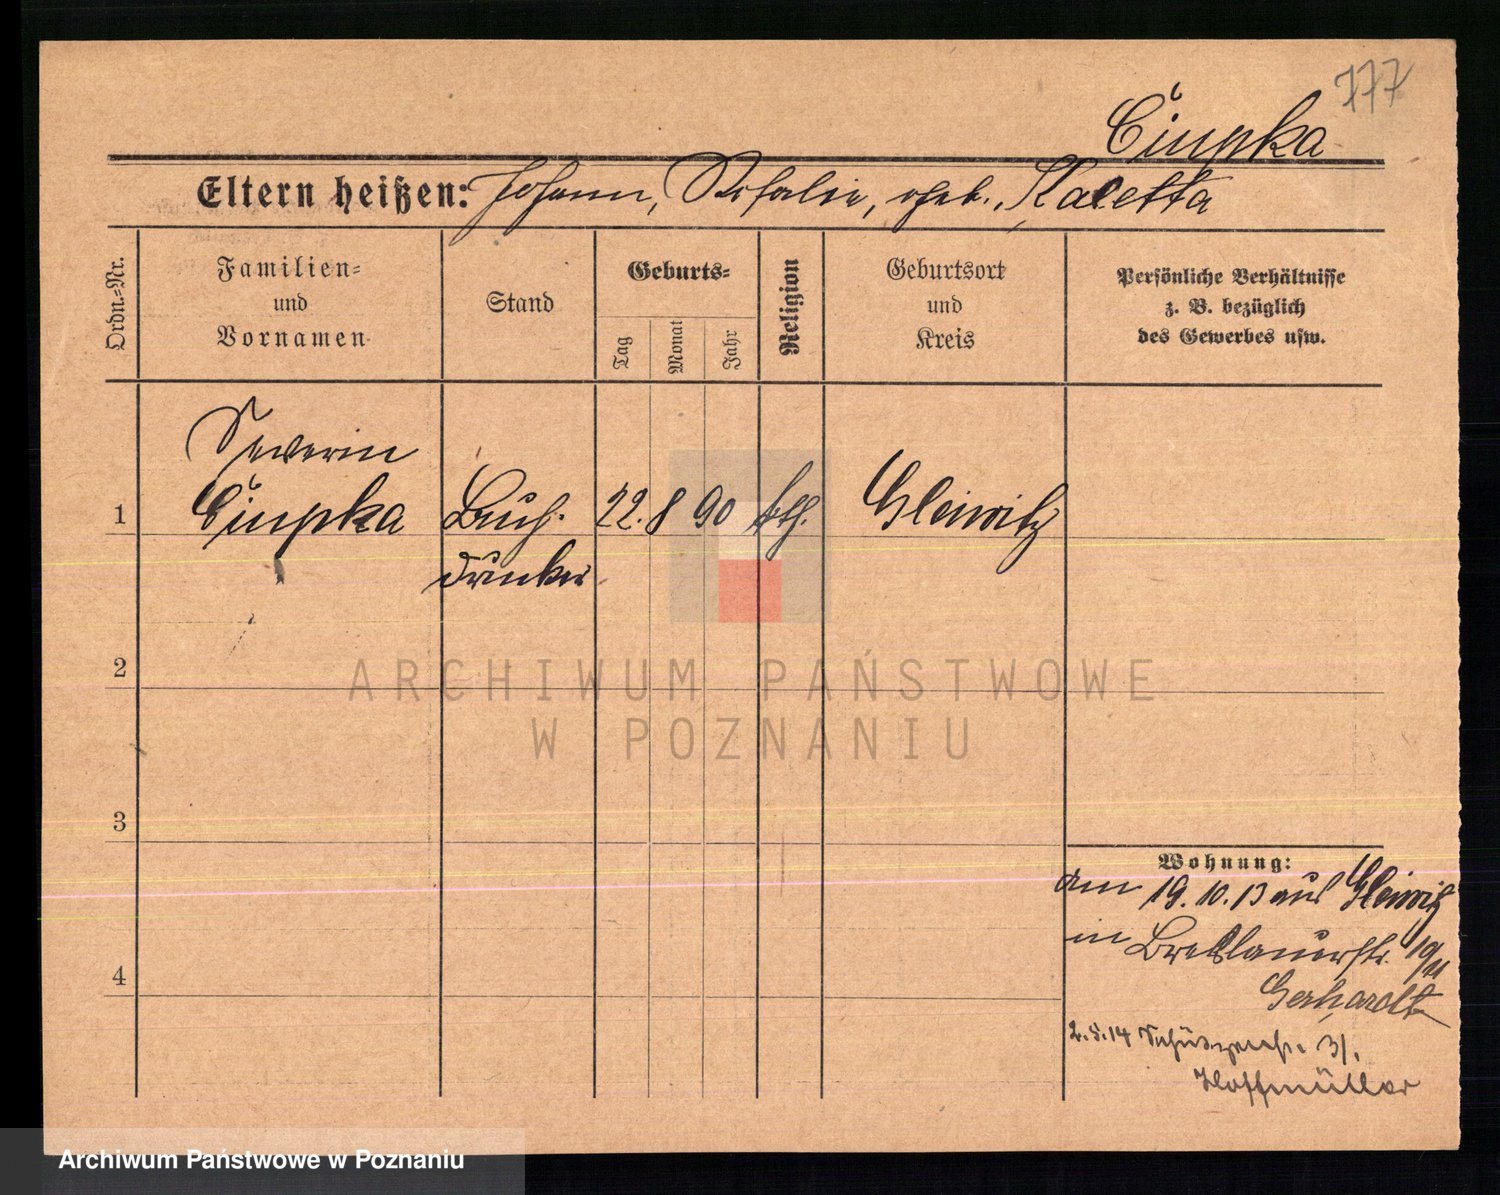 777
Ciupka
Eltern heißen: Johann, Rosalie, geb. Kaletta
Ordn.-Nr.
Familien-
und
Vornamen
Stand
Geburts-
Tag
Monat
Jahr
Religion
Geburtsort
und
Kreis
Persönliche Verhältnisse
z. B. bezüglich
des Gewerbes usw.
Severin
1 Ciupka Buch- 22. 8 90 kth. Gleiwitz
drucker
2
ARCHIWUM PAŃSTWOWE
W POZNANIU
3
Wohnung:
am 19.10.13 aus Gleiwitz
in Breslauerstr. 19/II
Gerhardt
4
2.5.14 3/.
Hoffmüller
Archiwum Państwowe w Poznaniu